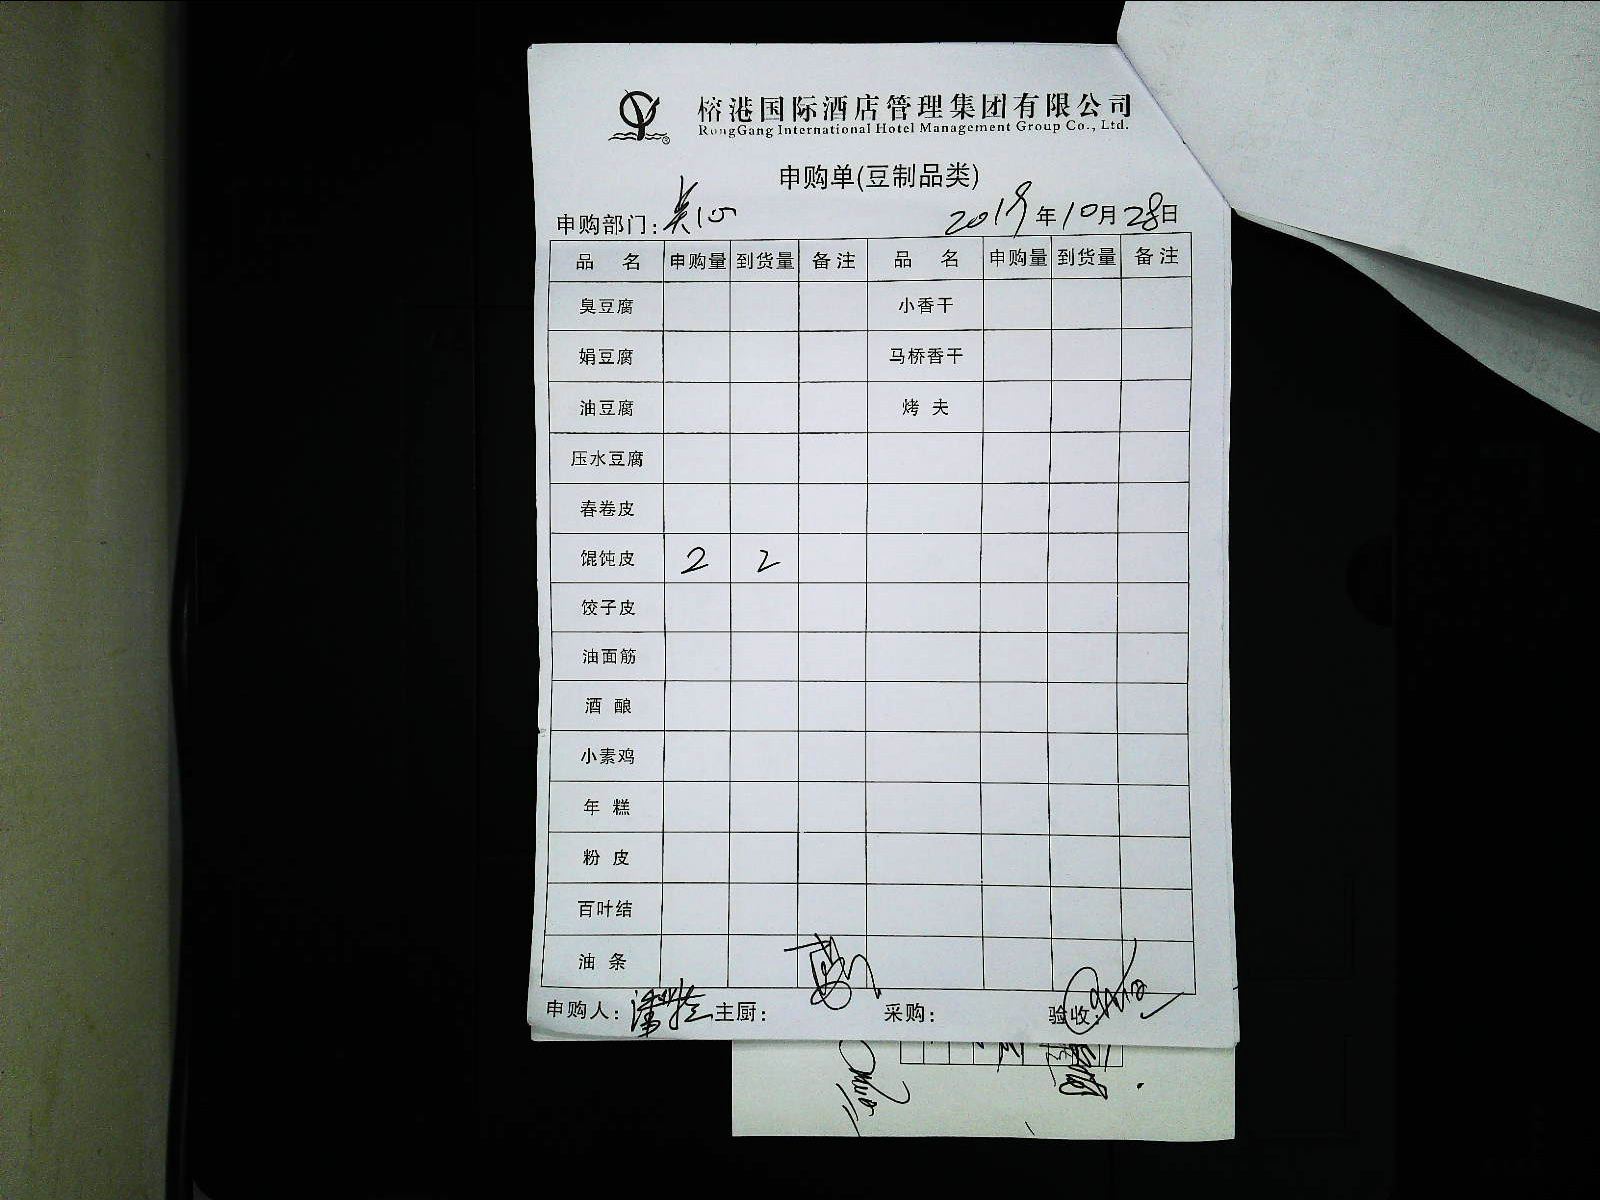 榕港国际酒店管理集团有限公司
RongGang International Hotel Management Group Co., Ltd.
申购单(豆制品类)
申购部门: 点心 2019年10月28日
品 名 申购量 到货量 备注 品 名 申购量 到货量 备注
臭豆腐 小香干
娟豆腐 马桥香干
油豆腐 烤 夫
压水豆腐
春卷皮
馄饨皮 2 2
饺子皮
油面筋
酒 酿
小素鸡
年 糕
粉 皮
百叶结
油 条
申购人: 主厨: 采购: 验收: